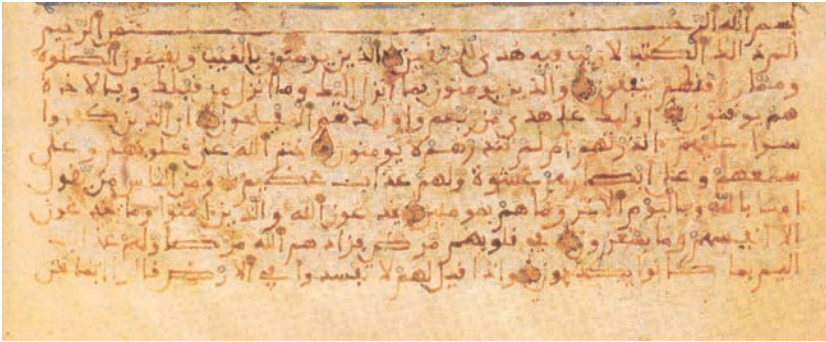 بسم الله الرحمن الرحيم
الم ذلك الكتب لا ريب فيه هدى للمتقين الذين يومنون بالغيب ويقيمون الصلوة
ومما رزقنهم ينفقون والذين يومنون بما انزل اليك وما انزل من قبلك وبالاخرة
هم يوقنون اوليك على هدى من ربهم واوليك هم المفلحون ان الذين كفروا
سواء عليهم ءانذرتهم ام لم تنذرهم لا يومنون ختم الله على قلوبهم وعلى
سمعهم وعلى ابصرهم غشوة ولهم عذاب عظيم ومن الناس من يقول
امنا بالله وباليوم الاخر وما هم بمومنين يخدعون الله والذين امنوا وما يخدعون
الا انفسهم وما يشعرون في قلوبهم مرض فزادهم الله مرضا ولهم عذاب
اليم بما كانوا يكذبون واذا قيل لهم لا تفسدوا في الارض قالوا انما نحن